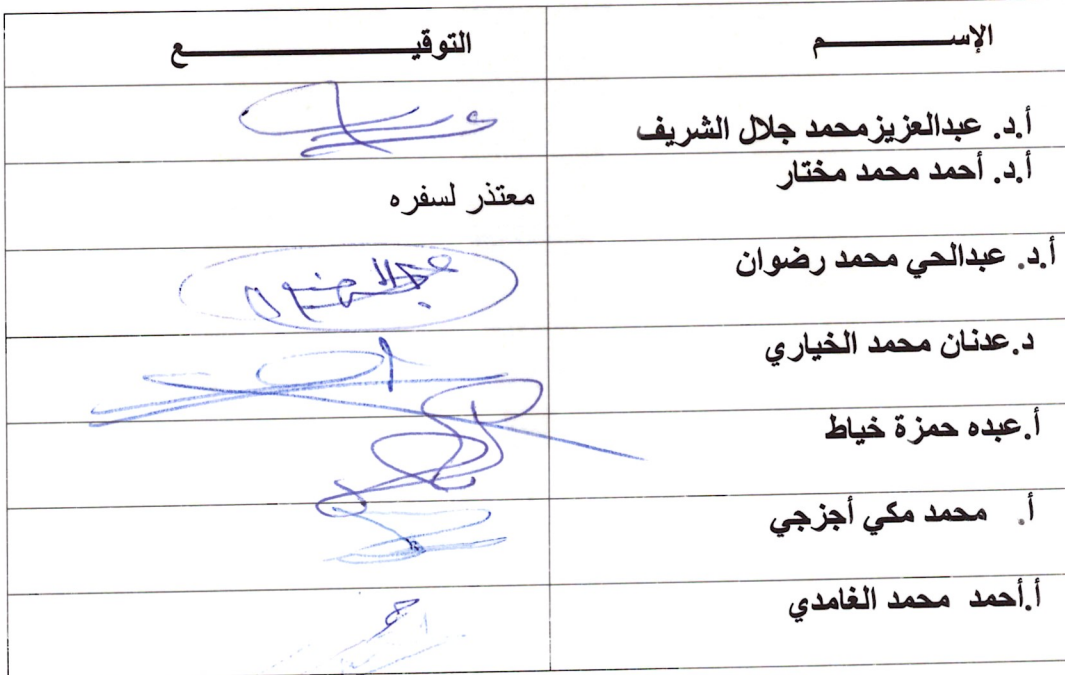 الإســــــــم التوقيــــــــــــــع
أ.د. عبدالعزيزمحمد جلال الشريف
أ.د. أحمد محمد مختار معتذر لسفره
أ.د. عبدالحي محمد رضوان
د.عدنان محمد الخياري
أ.عبده حمزة خياط
أ. محمد مكي أجزجي
أ.أحمد محمد الغامدي